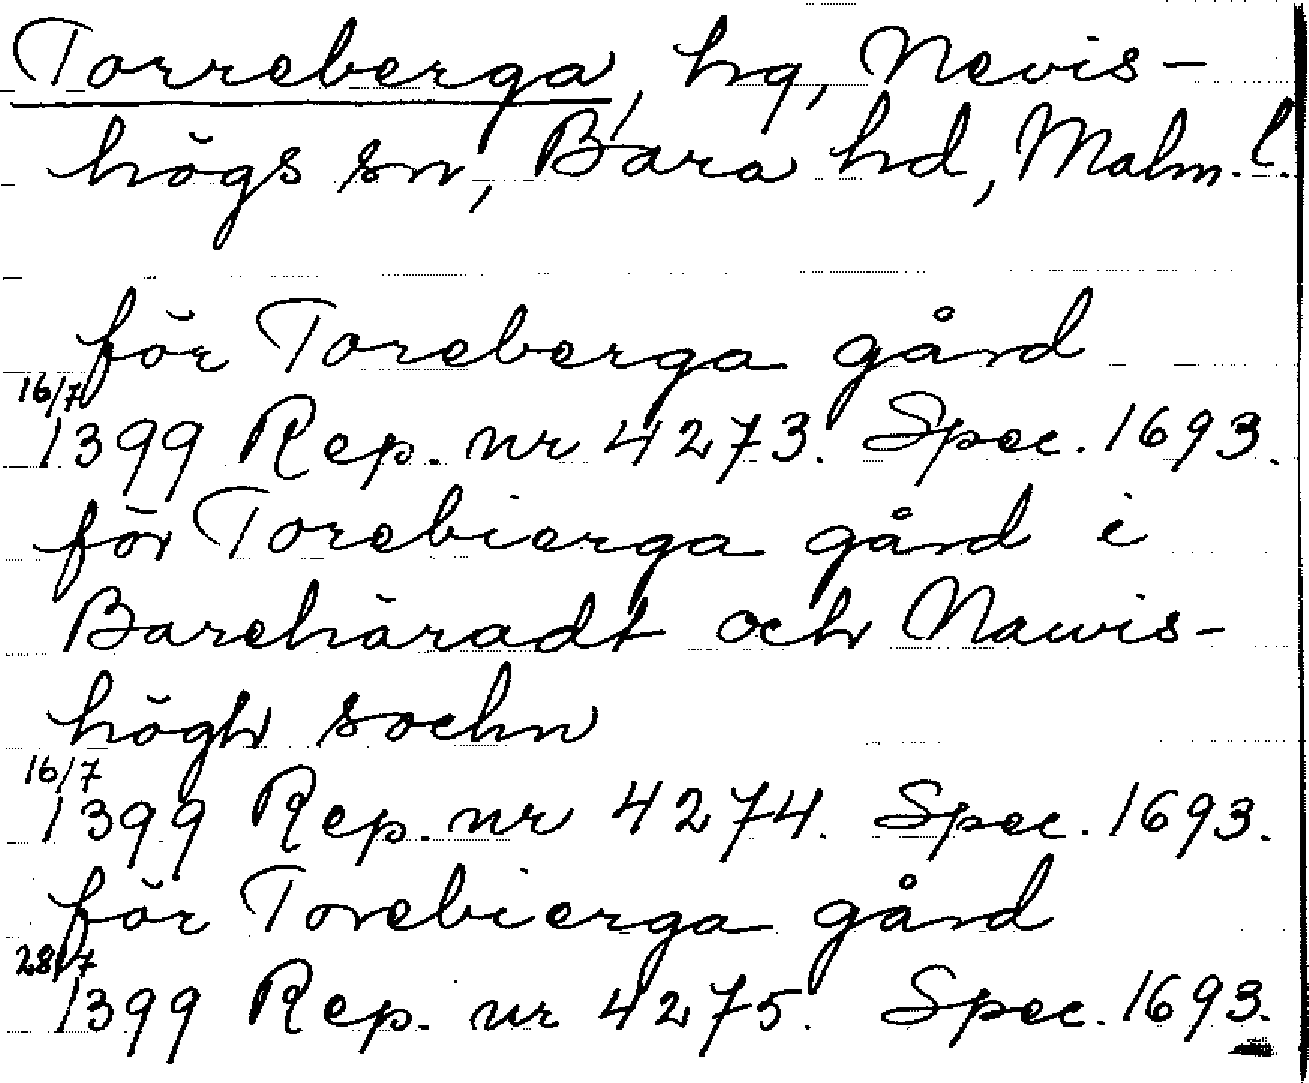 Torreberga, hg, Nevis-
högs sn, Bara hd, Malm. l.
för Toreberga gård
16/7
1399 Rep. nr 4273. Spec. 1693.
för Torebierga gård i
Barehäradt och Nawis-
högh sochn
16/7
1399 Rep. nr 4274. Spec. 1693.
för Torebierga gård
28/7
1399 Rep. nr 4275. Spec. 1693.